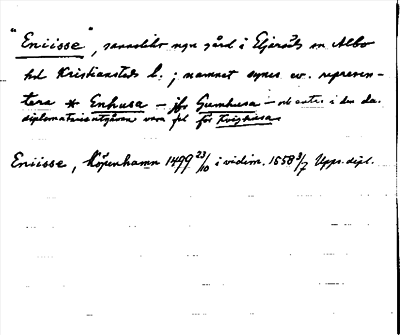 "Eniisse", sannolikt ngn gård i Eljaröds sn Albo
hd Kristianstads l.; namnet synes ev. represen-
tera * Enhusa – jfr Gumhusa – ock antr. i den da.
diplomatarieutgåvan vara fel för Kvighusa
Eniisse, Köpenhamn 1499 23/10 i vidim. 1658 3/7 Upps. dipl.